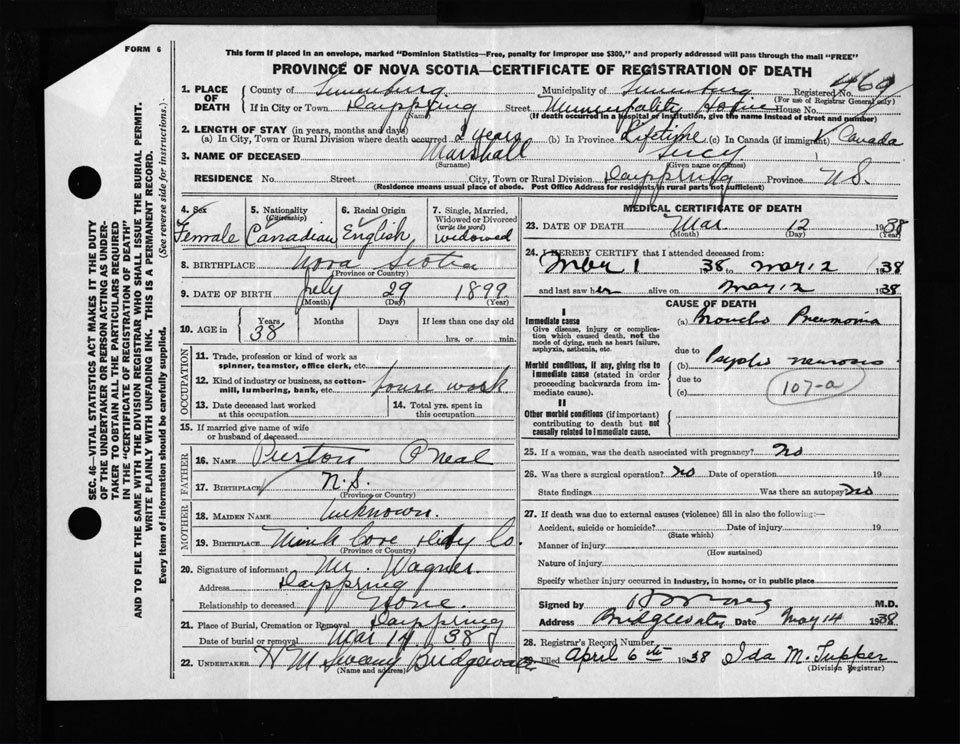 FORM 6
This form if placed in an envelope, marked "Dominion Statistics—Free, penalty for improper use $300," and properly addressed will pass through the mail "FREE"
PROVINCE OF NOVA SCOTIA—CERTIFICATE OF REGISTRATION OF DEATH
1. PLACE OF DEATH
County of Lunenburg Municipality of Lunenburg Registered No. 469
(For use of Registrar General only)
If in City or Town Street Municipality Home House No.
(Name) (If death occurred in a hospital or institution, give the name instead of street and number)
2. LENGTH OF STAY (in years, months and days)
(a) In City, Town or Rural Division where death occurred 2 years (b) In Province Lifetime (c) In Canada (if immigrant) Canada
3. NAME OF DECEASED Marshall Lucy
(Surname) (Given name or names)
RESIDENCE No. Street City, Town or Rural Division Province N.S.
(Residence means usual place of abode. Post Office Address for residents in rural parts not sufficient)
4. Sex Female
5. Nationality (Citizenship) Canadian
6. Racial Origin English
7. Single, Married, Widowed or Divorced (write the word) widowed
8. BIRTHPLACE Nova Scotia
(Province or Country)
9. DATE OF BIRTH July 29 1899
(Month) (Day) (Year)
10. AGE in Years Months Days If less than one day old
38 hrs. or min.
OCCUPATION
11. Trade, profession or kind of work as spinner, teamster, office clerk, etc.
12. Kind of industry or business, as cotton-mill, lumbering, bank, etc. house work
13. Date deceased last worked at this occupation
14. Total yrs. spent in this occupation
15. If married give name of wife or husband of deceased
FATHER
16. NAME Preston O'Neal
17. BIRTHPLACE N.S.
(Province or Country)
MOTHER
18. MAIDEN NAME Unknown.
19. BIRTHPLACE Mink Cove Digby Co.
(Province or Country)
20. Signature of informant Mr. Wagner.
Address
Relationship to deceased None.
21. Place of Burial, Cremation or Removal
Date of burial or removal Mar 14 38
22. UNDERTAKER Bridgewater
(Name and address)
MEDICAL CERTIFICATE OF DEATH
23. DATE OF DEATH Mar. 12 1938
(Month) (Day) (Year)
24. I HEREBY CERTIFY that I attended deceased from:
1 38 to Mar 12 1938
and last saw her alive on Mar 12 1938
CAUSE OF DEATH
I
Immediate cause
Give disease, injury or complication which caused death, not the mode of dying, such as heart failure, asphyxia, asthenia, etc.
(a) Broncho Pneumonia
due to
(b) Psycho neurosis
Morbid conditions, if any, giving rise to immediate cause (stated in order proceeding backwards from immediate cause).
due to
(c)
107-a
II
Other morbid conditions (if important) contributing to death but not causally related to immediate cause.
25. If a woman, was the death associated with pregnancy? No
26. Was there a surgical operation? No Date of operation 19
State findings Was there an autopsy? No
27. If death was due to external causes (violence) fill in also the following:—
Accident, suicide or homicide? Date of injury 19
(State which)
Manner of injury
(How sustained)
Nature of injury
Specify whether injury occurred in industry, in home, or in public place
Signed by M.D.
Address Bridgewater Date Mar 14 1938
28. Registrar's Record Number
29. Filed April 6th 1938 Ida M. Tupper
(Division Registrar)
SEC. 46—VITAL STATISTICS ACT MAKES IT THE DUTY
OF THE UNDERTAKER OR PERSON ACTING AS UNDER-
TAKER TO OBTAIN ALL THE PARTICULARS REQUIRED
IN THE "CERTIFICATE OF REGISTRATION OF DEATH"
AND TO FILE THE SAME WITH THE DIVISION REGISTRAR WHO SHALL ISSUE THE BURIAL PERMIT.
WRITE PLAINLY WITH UNFADING INK. THIS IS A PERMANENT RECORD.
Every item of information should be carefully supplied. (See reverse side for instructions.)